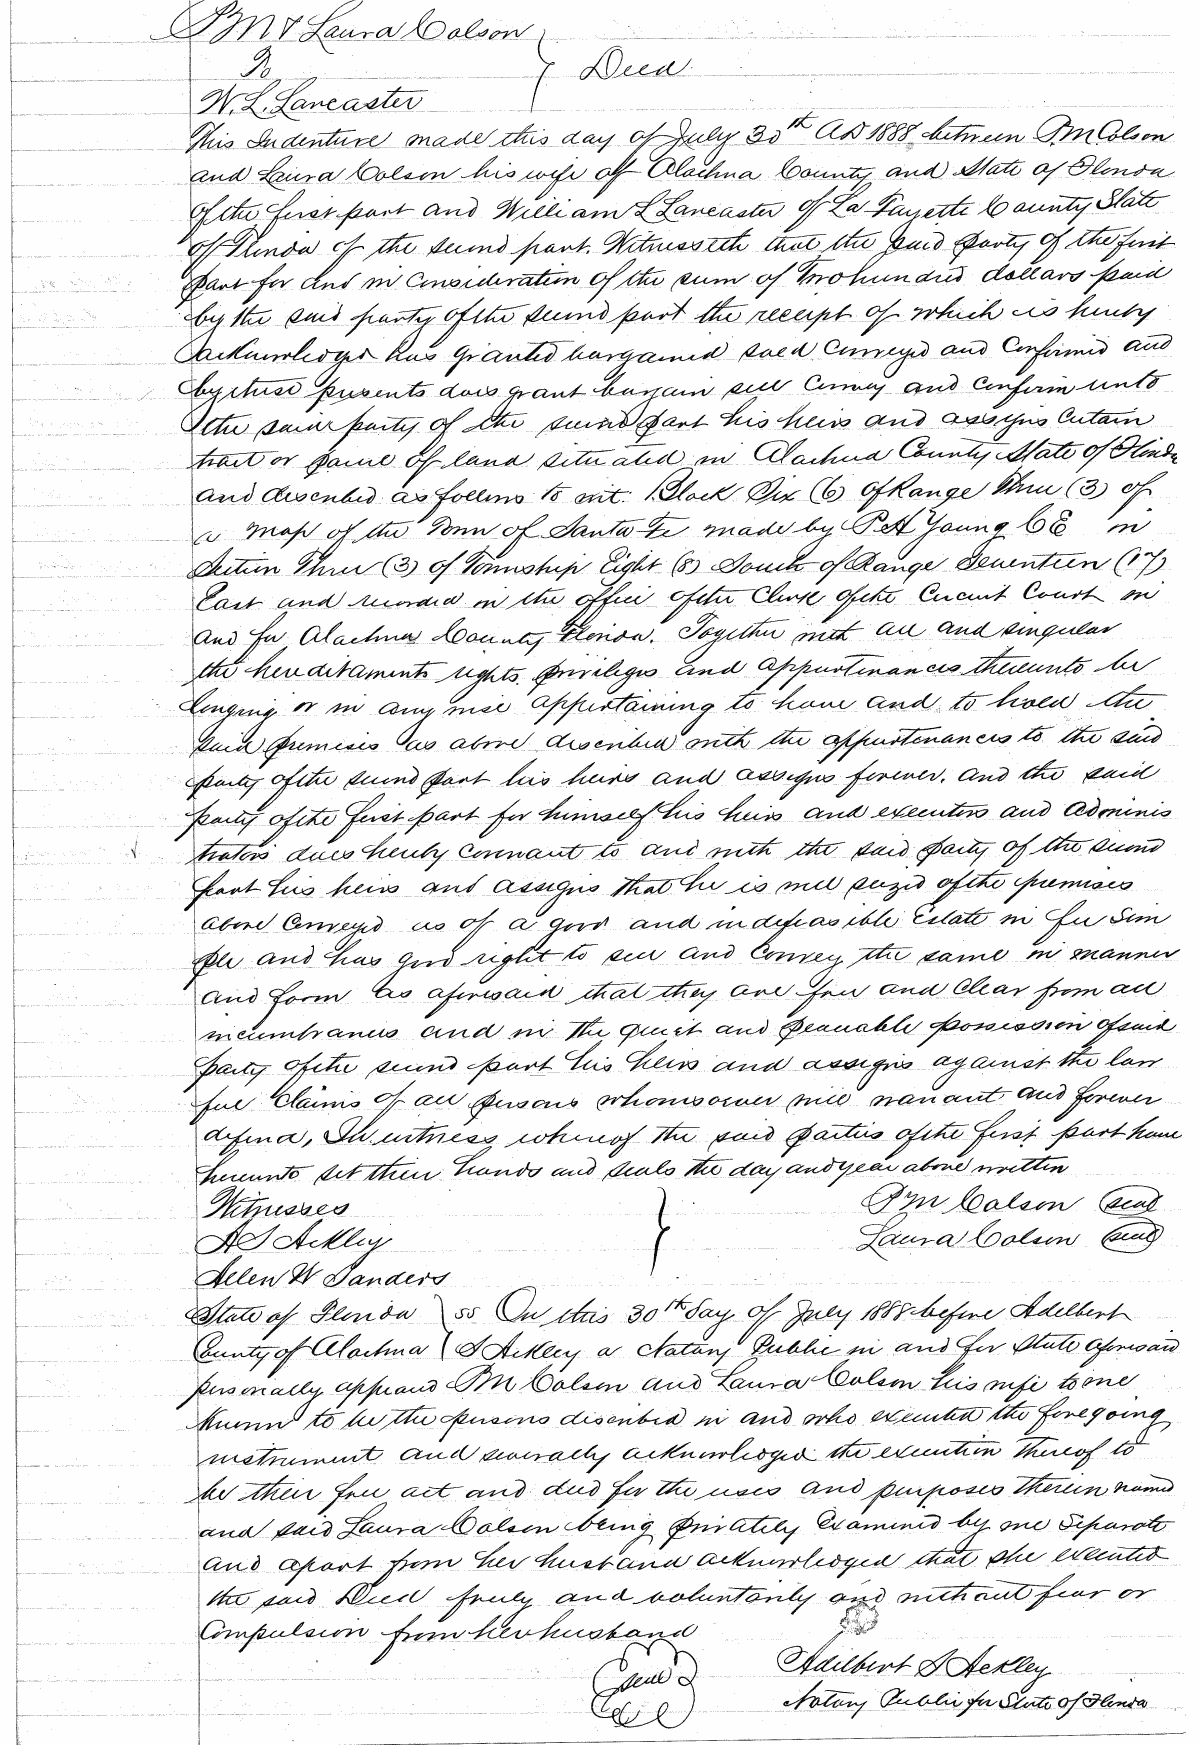 P M & Laura Colson
To } Deed.
W. L. Lancaster
This Indenture made this day of July 30th AD 1888 between P. M Colson
and Laura Colson his wife of Alachua County and State of Florida
of the first part and William L Lancaster of La Fayette County State
of Florida of the second part. Witnesseth that the said party of the first
part for and in Consideration of the sum of Two hundred dollars paid
by the said party of the second part the receipt of which is hereby
acknowledged has granted bargained sold Conveyed and Confirmed and
by these presents does grant bargain sell Convey and Confirm unto
the said party of the second part his heirs and assigns Certain
tract or parcel of land situated in Alachua County State of Florida
and described as follows to wit. Block Six (6) of Range Three (3) of
a Map of the Town of Santa Fe made by P A Young C E in
Section Three (3) of Township Eight (8) South of Range Seventeen (17)
East and recorded in the office of the Clerk of the Circuit Court in
and for Alachua County Florida. Together with all and singular
the hereditaments rights privileges and appurtenances thereunto be
longing or in any wise appertaining to have and to hold the
said premises as above described with the appurtenances to the said
party of the second part his heirs and assigns forever. and the said
party of the first part for himself his heirs and executors and adminis
trators does hereby Covenant to and with the said party of the second
part his heirs and assigns that he is well seized of the premises
above Conveyed as of a good and indefeasible Estate in fee Sim
ple and has good right to sell and Convey the same in manner
and form as aforesaid that they are free and Clear from all
incumbrances and in the quiet and peaceable possession of said
party of the second part his heirs and assigns against the law
ful Claims of all persons whomsoever will warrant and forever
defend, In witness whereof the said parties of the first part have
hereunto set their hands and seals the day and year above written
Witnesses } P M Colson (seal)
A S Ackley Laura Colson (seal)
Helen W Sanders
State of Florida } ss On this 30th Day of July 1888 before Adelbert
County of Alachua } S Ackley a Notary Public in and for State aforesaid
personally appeard P M Colson and Laura Colson his wife to me
Known to be the persons described in and who executed the foregoing
instrument and severally acknowledged the execution thereof to
be their free act and deed for the uses and purposes therein named
and said Laura Colson being privately Examined by me separate
and apart from her husband acknowledged that she executed
the said Deed freely and voluntarily and without fear or
Compulsion from her husband
Adelbert S Ackley
(seal) Notary Public for State of Florida